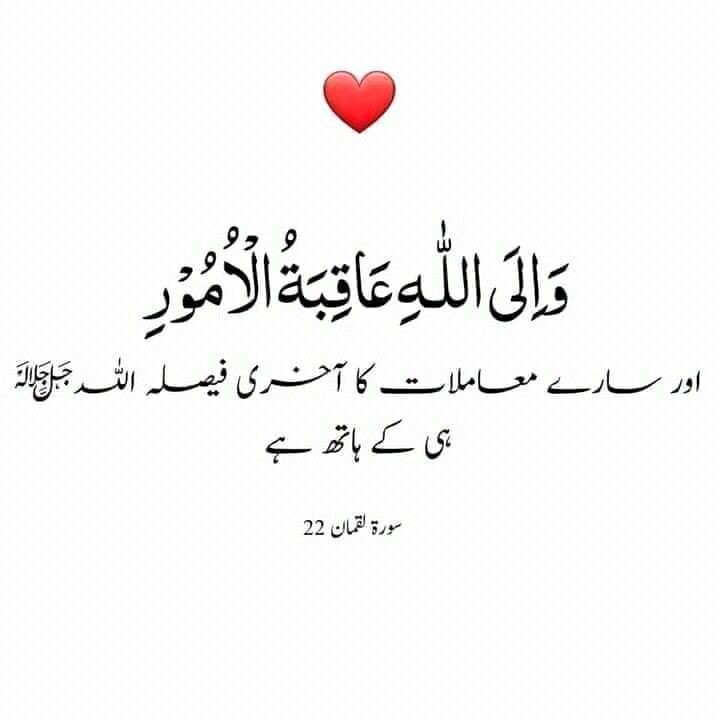 وَاِلَى اللّٰهِ عَاقِبَةُ الْاُمُوْرِ
اور سارے معاملات کا آخری فیصلہ اللہ جَلَّ جَلَالُہٗ
ہی کے ہاتھ ہے
سورۃ لقمان 22